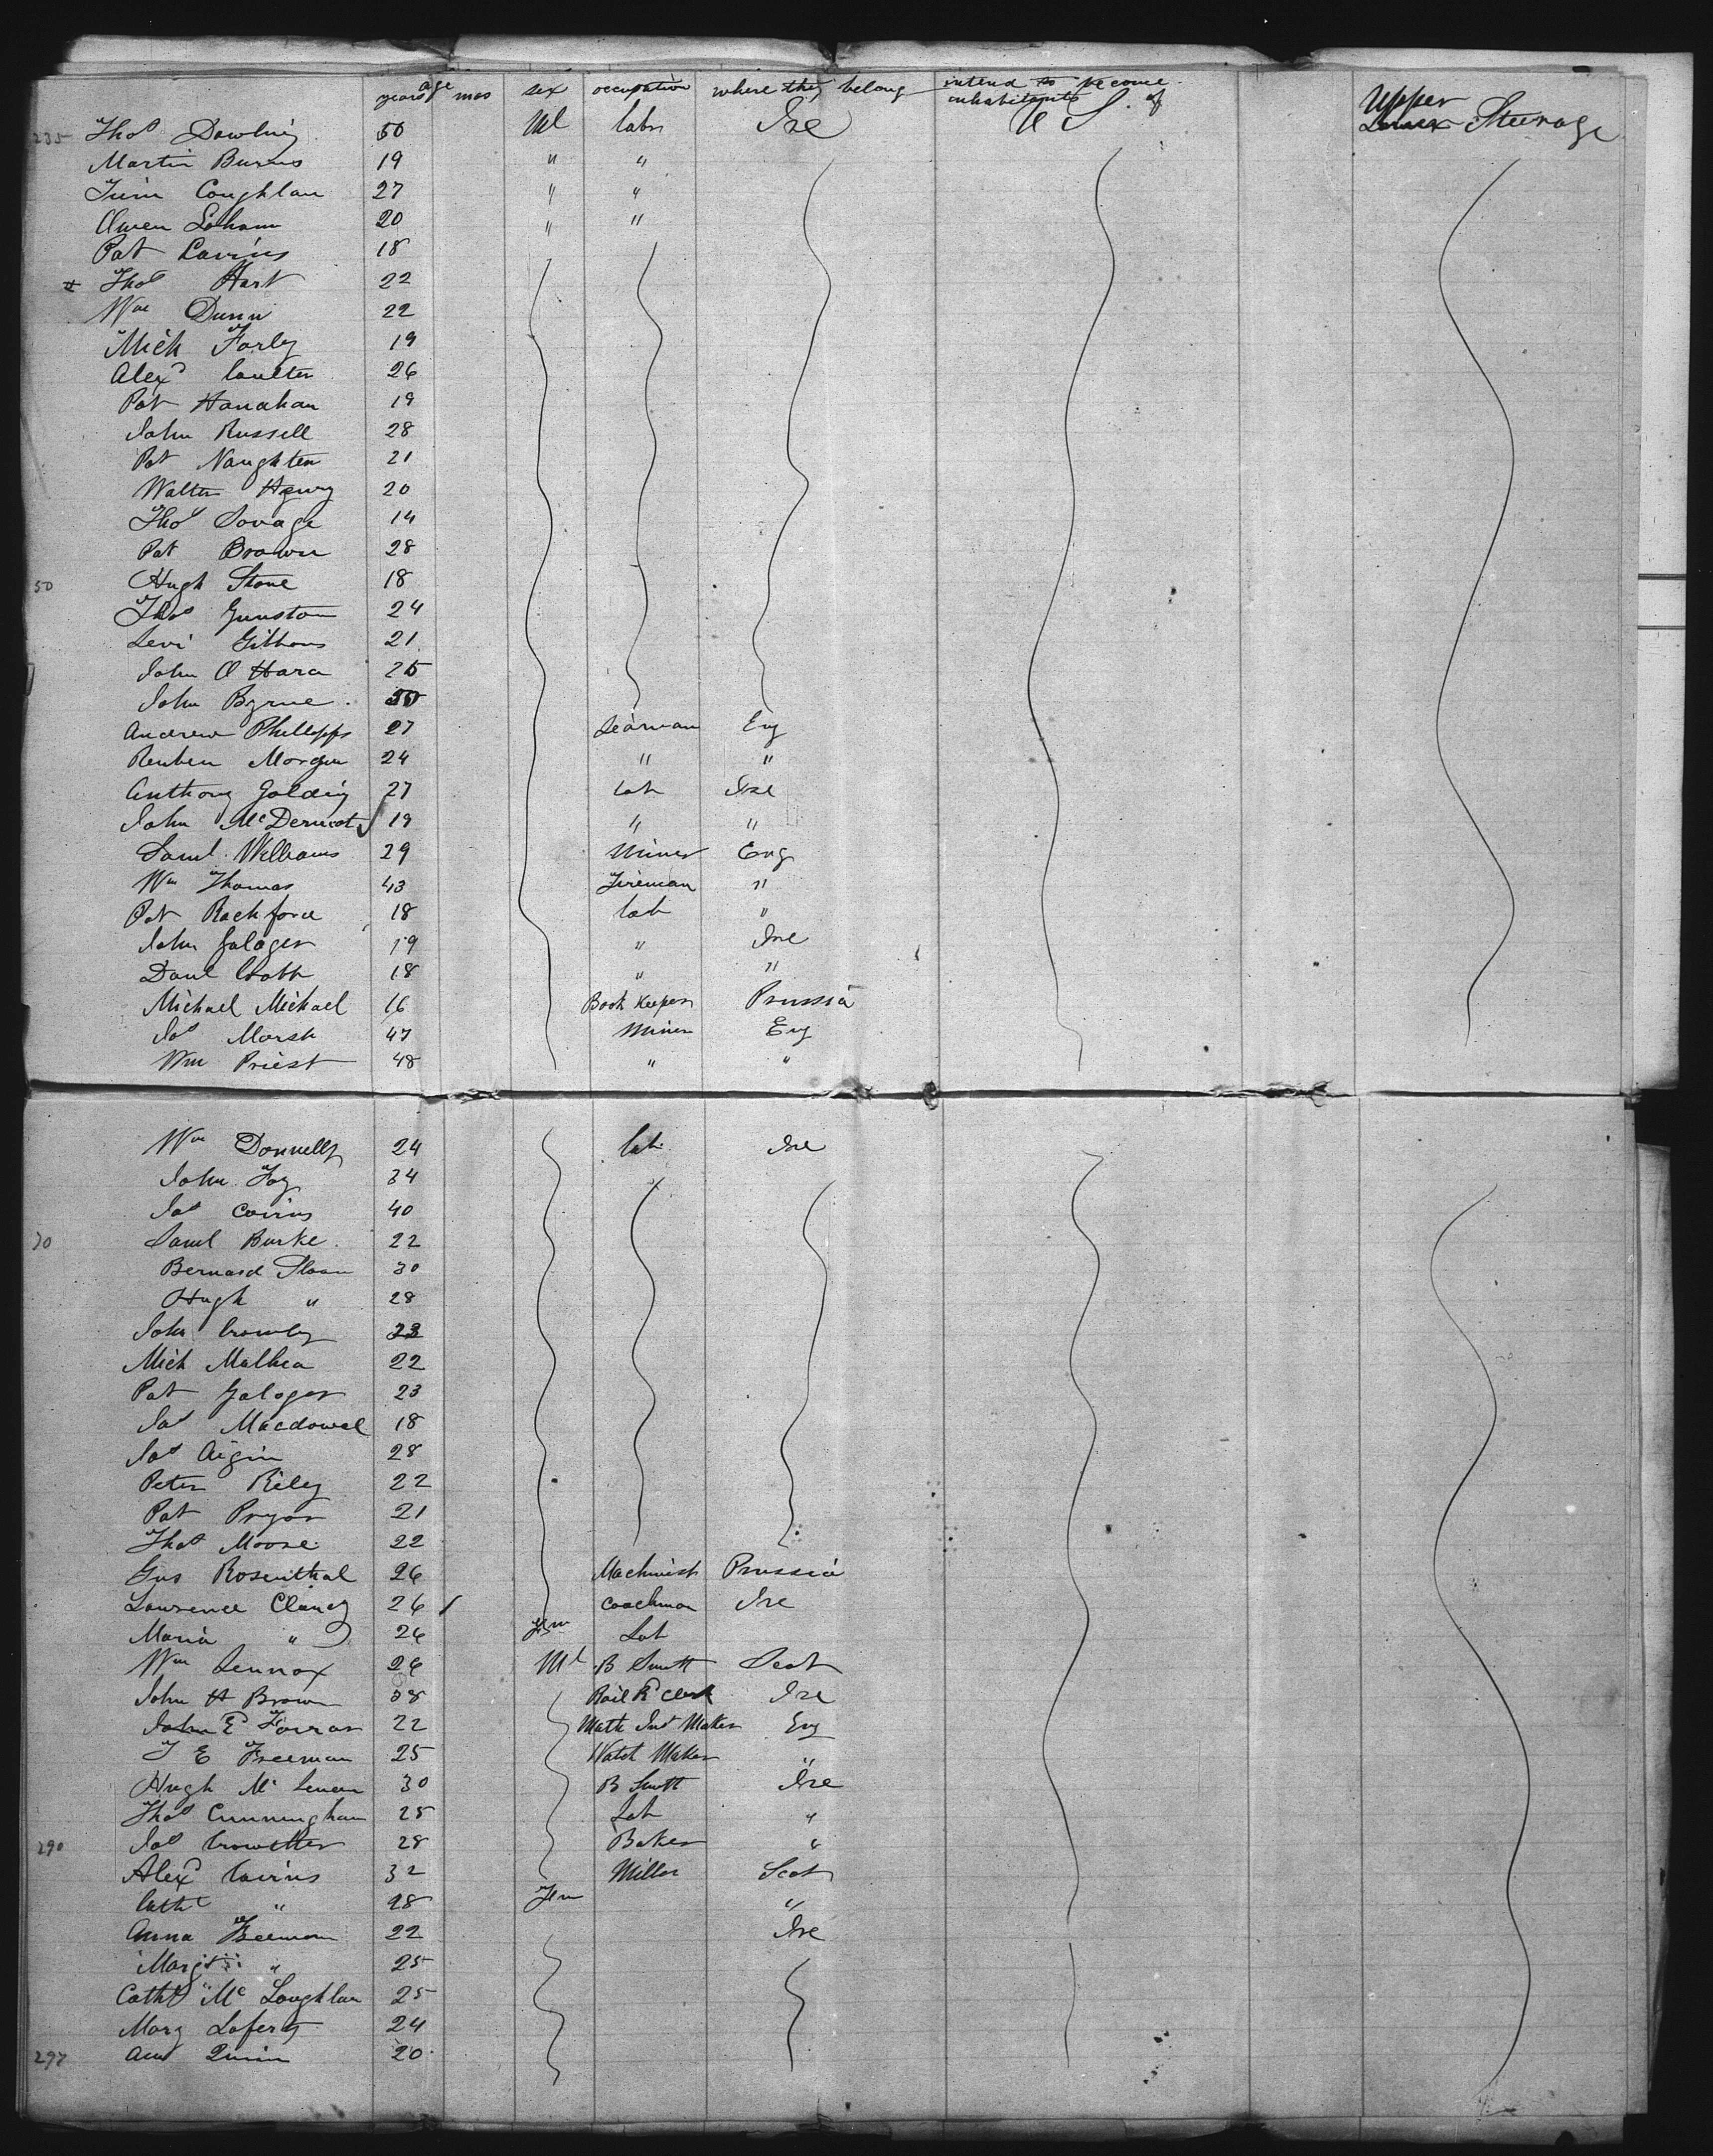 age
years mos sex occupation where they belong intend to become inhabitants of Upper
235 Thos Dowling 50 Ml labr Ire U S Lower Steerage
Martin Burns 19 " "
Coughlan 27 " "
Owen 20 " "
Pat 18
Thos Hart 22
Wm Dunn 22
Mich Farley 19
Alexr Coulter 26
Pat Hanahan 19
John Russell 28
Pat Naughten 21
Walter Henry 20
Thos Savage 14
Pat Brown 28
50 Hugh Stone 18
Thos Gunston 24
Levi Gibbons 21
John O Hara 25
John Byrne
Andrew Phillipps 27 Seaman Eng
Reuben Morgan 24 " "
Anthony Golding 27 lab Ire
John McDermot 19 " "
Saml Williams 29 Miner Eng
Wm Thomas 43 Fireman "
Pat Rochford 18 lab "
John Galager 19 " Ire
Danl 18 " "
Michael Michael 16 Book Keeper Prussia
Jas Marsh 47 Miner Eng
Wm Priest 48 " "
Wm Donnelly 24 lab Ire
John Foy 34
Jas Cairns 40
70 Saml Burke 22
Bernard Sloan 30
Hugh " 28
John Crowley
Mich 22
Pat Galager 23
Jas Macdowel 18
Jas 28
Peter Riley 22
Pat Pryor 21
Thos Moore 22
Gus Rosenthal 26 Machinist Prussia
Lawrence Clancy 26 Coachman Ire
Maria " 26 Fem Lab
Wm Lennox 26 Ml B Smith Scot
John H Brown 38 Rail Rd Clerk Ire
John E Farrar 22 Math Inst Maker Eng
J E Freeman 25 Watch Maker "
Hugh Mc 30 B Smith Ire
Thos Cunningham 25 Lab "
290 Jas Crowther 28 Baker "
Alexr Cairns 32 Miller Scot
Cathe " 28 Fem "
Anna Freeman 22 Ire
Margt " 25
Cathe Mc Loughlan 25
Marg Laferty 24
297 Ann Quinn 20